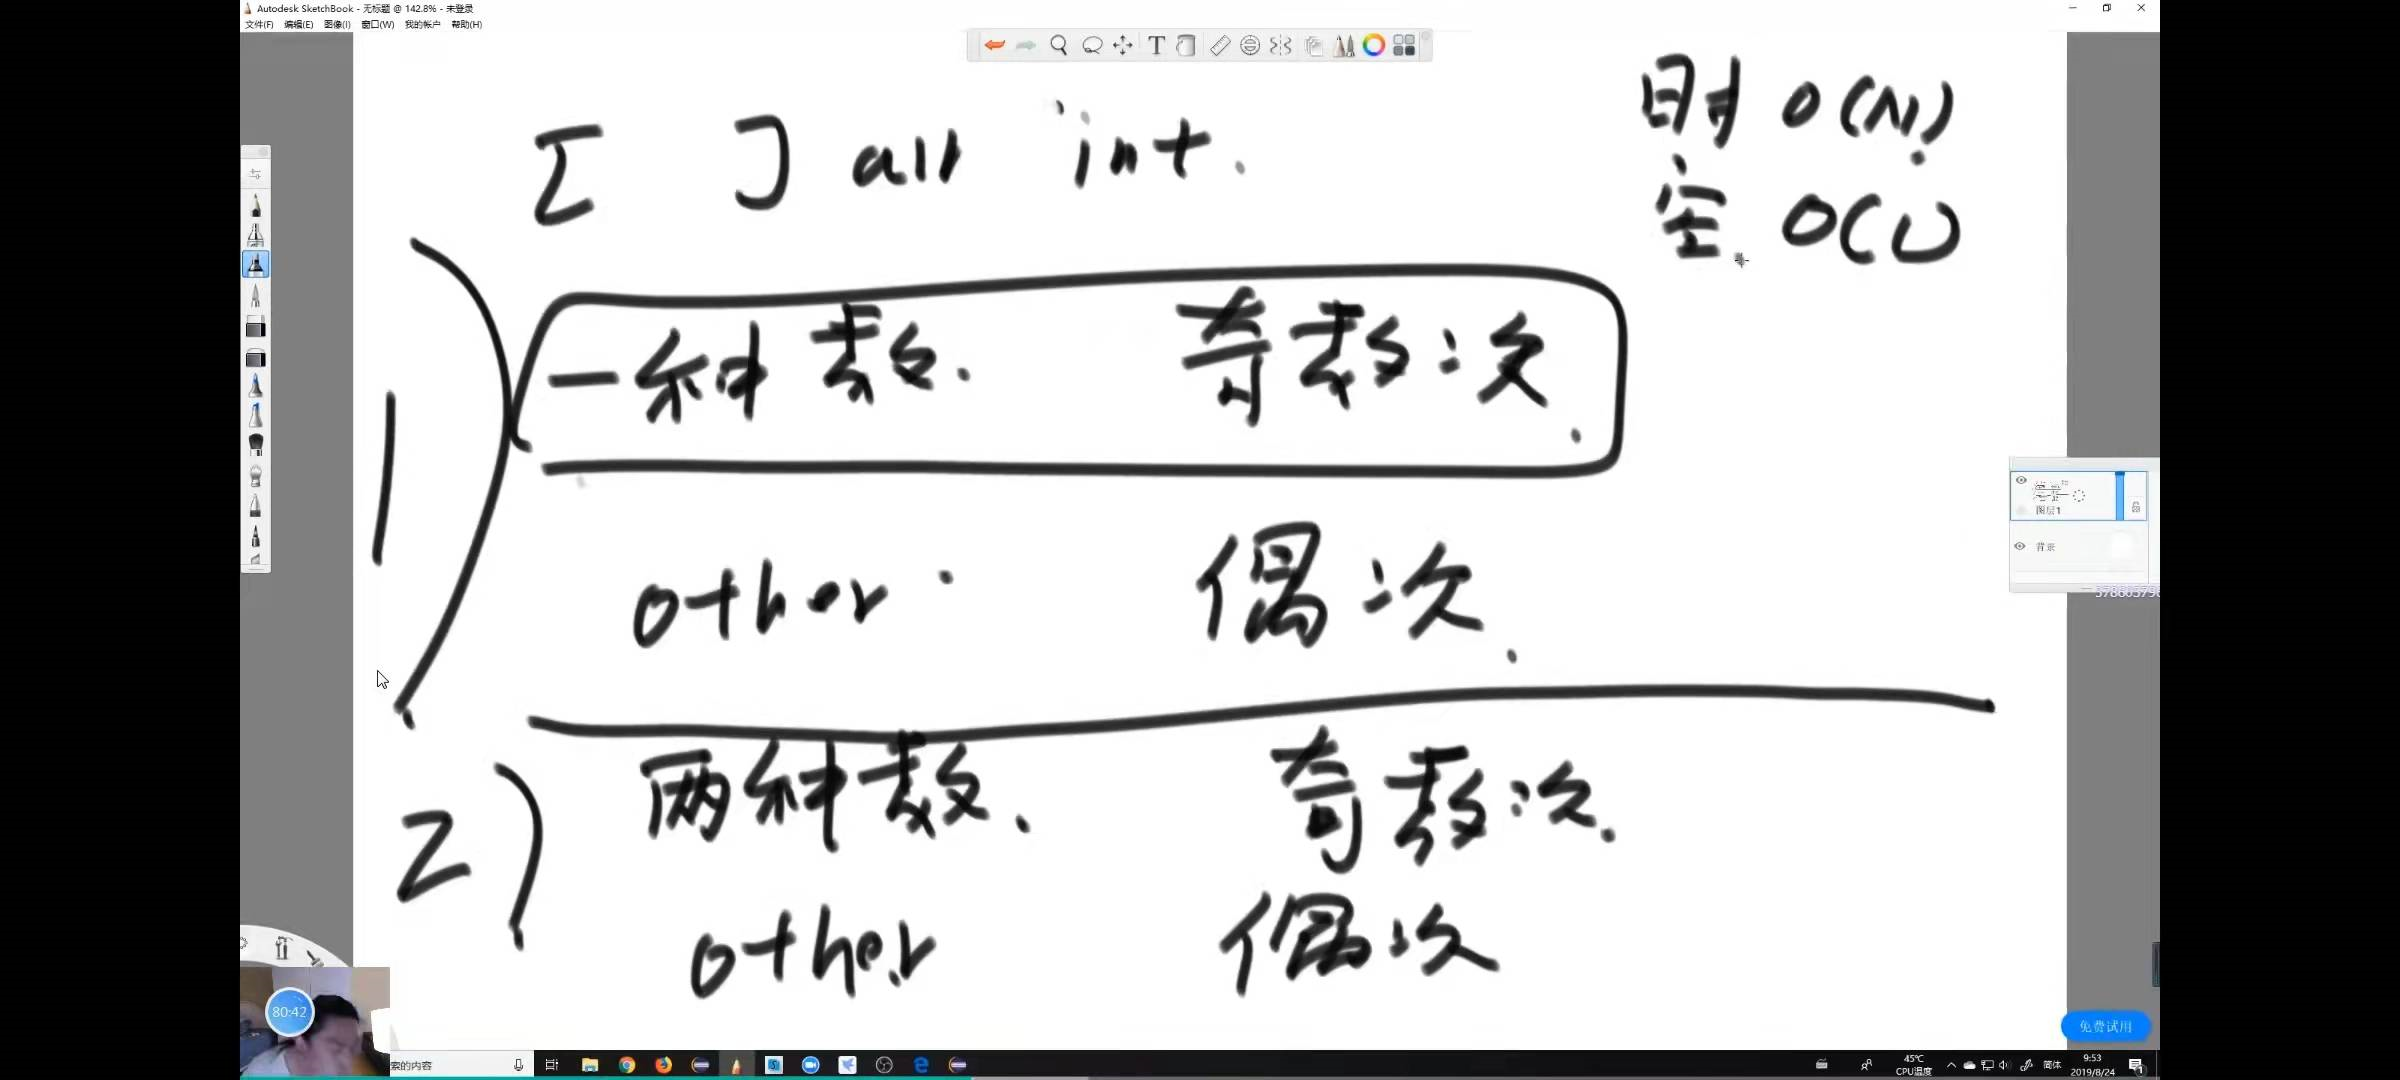 Autodesk SketchBook - 无标题 @ 142.8% - 未登录
文件(F) 编辑(E) 图像(I) 窗口(W) 我的帐户 帮助(H)
[ ] arr int.
时 O(N)
空 O(1)
1) 一种数. 奇数次.
other. 偶次.
2) 两种数. 奇数次.
other 偶次
图层1
背景
80:42
免费试用
索的内容
45℃
CPU温度
简体
9:53
2019/8/24